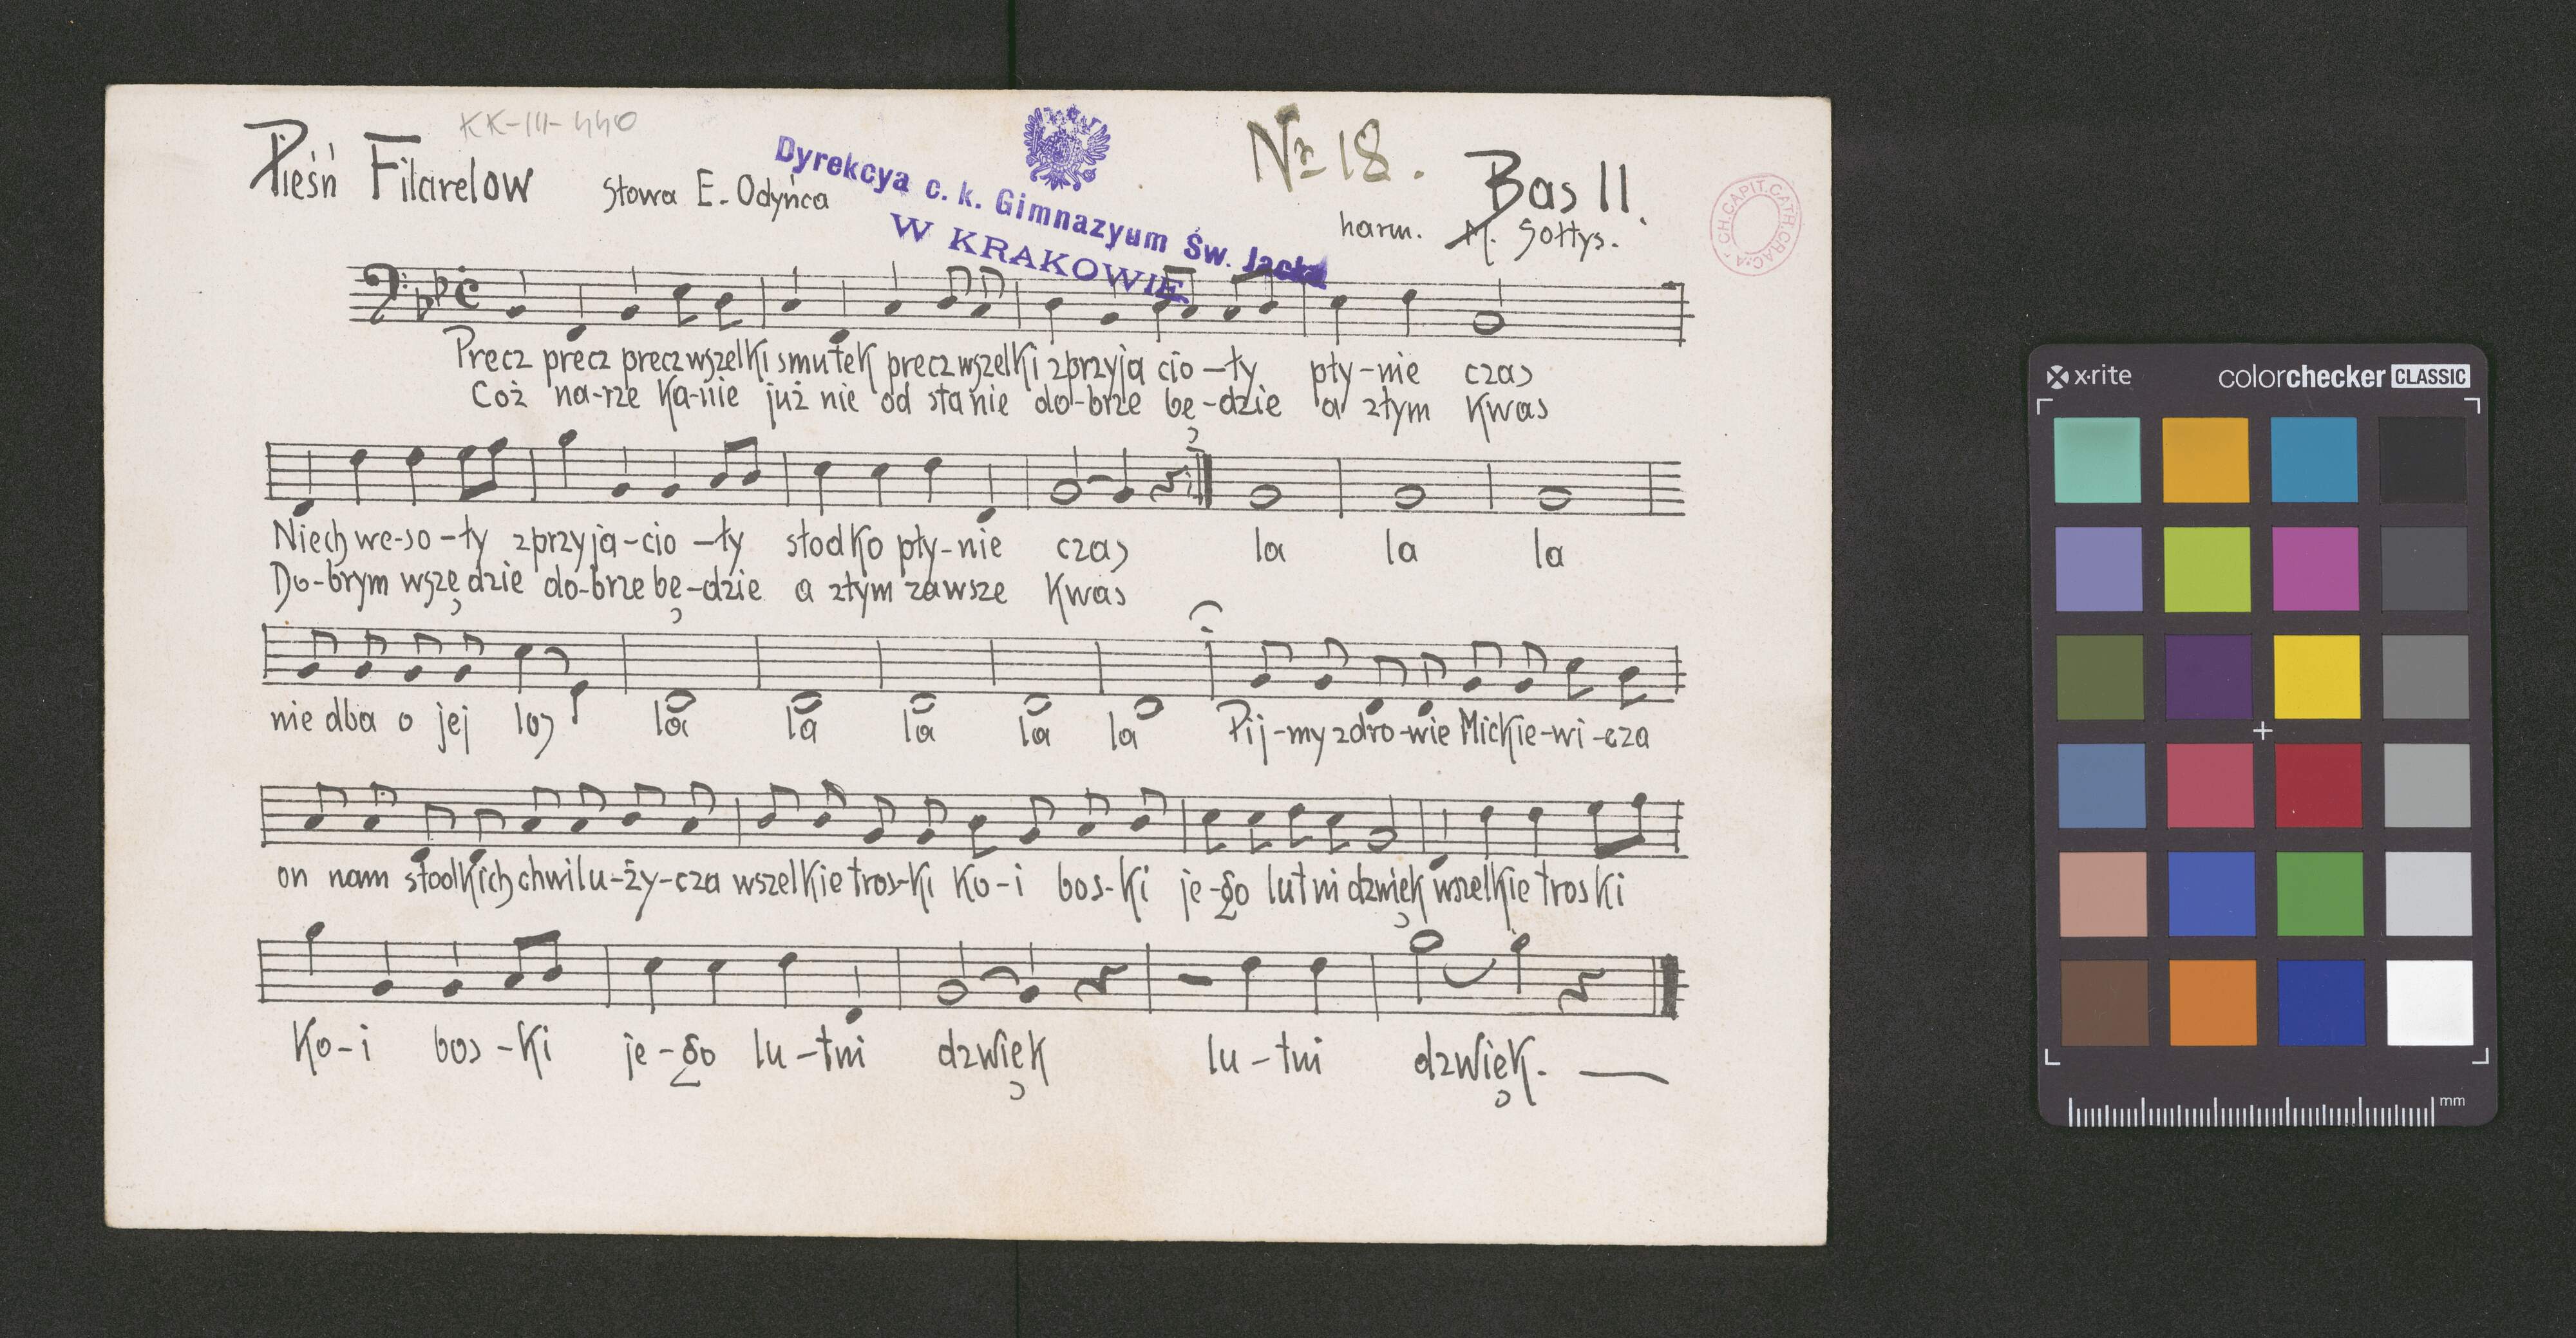 KK-III-440
Pieśń Filarelow słowa E. Odyńca
Dyrekcya c. k. Gimnazyum Św. Jacka
W KRAKOWIE
No 18.
Bas II.
harm. M. Sołtys.
CH.CAPIT.CATH.CRAC.A
Precz precz precz wszelki smutek precz wszelki z przyja cio-ły pły-nie czas
Coż na-rze ka-nie już nie od stanie do-brze bę-dzie a złym kwas
Niech we-so-ły z przyja-cio-ły słodko pły-nie czas la la la
Do-brym wszędzie do-brze bę-dzie a złym zawsze kwas
nie dba o jej los la la la la la Pij-my zdro-wie Mickie-wi-cza
on nam słodkich chwil u-ży-cza wszelkie tros-ki ko-i bos-ki je-go lutni dzwięk wszelkie troski
ko-i bos-ki je-go lu-tni dzwięk lu-tni dzwięk.
x-rite colorchecker CLASSIC
mm